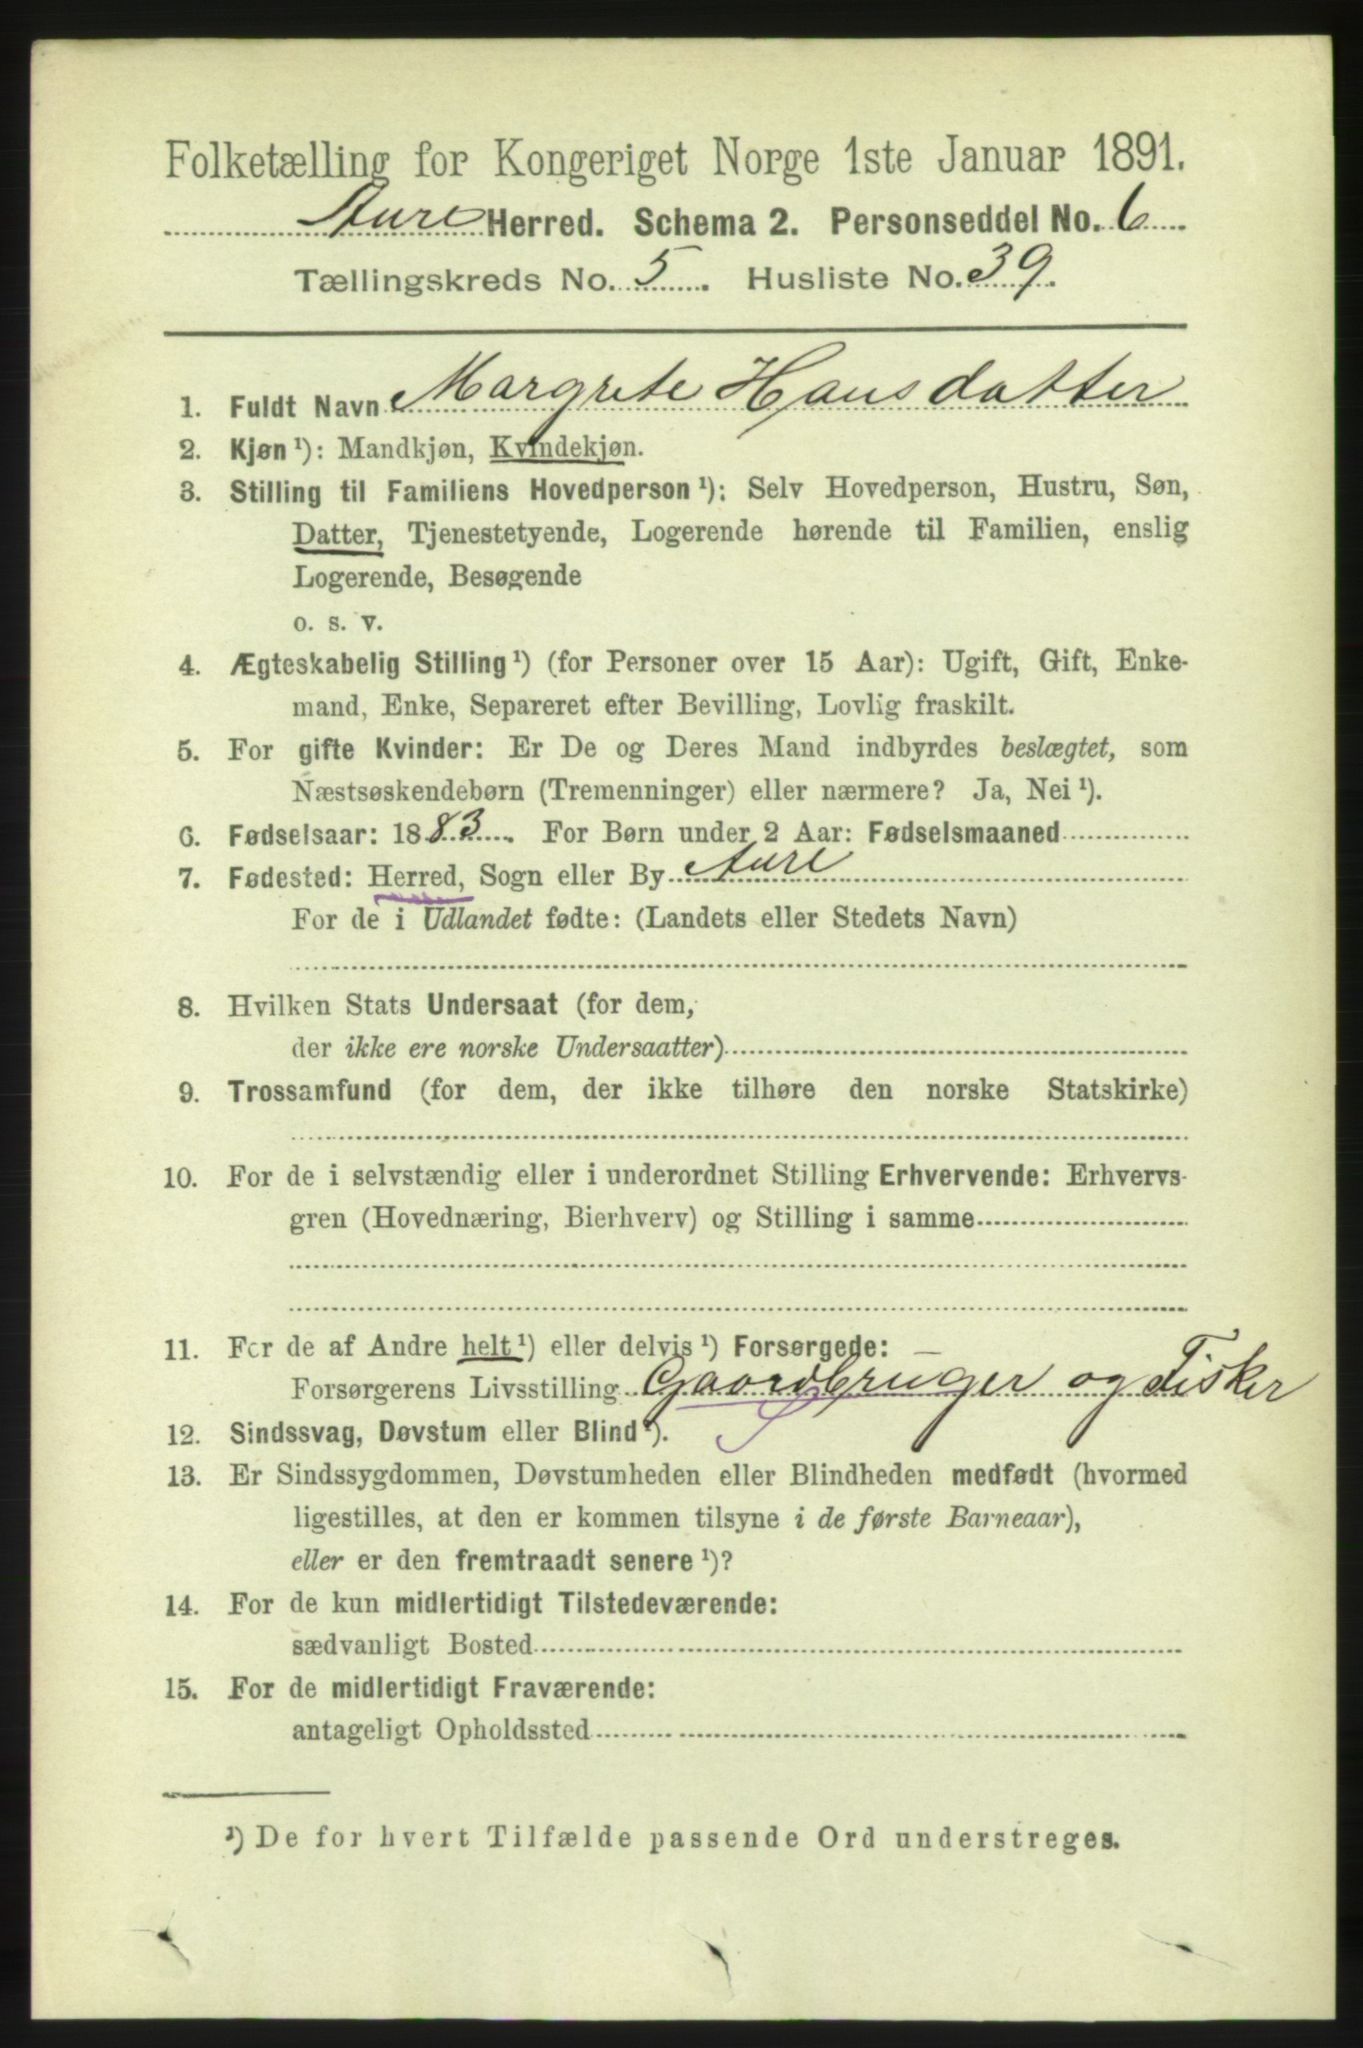 Folketælling for Kongeriget Norge 1ste Januar 1891.
Aure Herred. Schema 2. Personseddel No. 6
Tællingskreds No. 5. Husliste No. 39.
1. Fuldt Navn Margrete Hansdatter
2. Kjøn ¹): Mandkjøn, Kvindekjøn.
3. Stilling til Familiens Hovedperson ¹): Selv Hovedperson, Hustru, Søn,
Datter, Tjenestetyende, Logerende hørende til Familien, enslig
Logerende, Besøgende
o. s. v.
4. Ægteskabelig Stilling ¹) (for Personer over 15 Aar): Ugift, Gift, Enke-
mand, Enke, Separeret efter Bevilling, Lovlig fraskilt.
5. For gifte Kvinder: Er De og Deres Mand indbyrdes beslægtet, som
Næstsøskendebørn (Tremenninger) eller nærmere? Ja, Nei ¹).
6. Fødselsaar: 1883. For Børn under 2 Aar: Fødselsmaaned
7. Fødested: Herred, Sogn eller By Aure
For de i Udlandet fødte: (Landets eller Stedets Navn)
8. Hvilken Stats Undersaat (for dem,
der ikke ere norske Undersaatter)
9. Trossamfund (for dem, der ikke tilhøre den norske Statskirke)
10. For de i selvstændig eller i underordnet Stilling Erhvervende: Erhvervs-
gren (Hovednæring, Bierhverv) og Stilling i samme
11. For de af Andre helt ¹) eller delvis ¹) Forsørgede:
Forsørgerens Livsstilling Gaardbruger og Fisker
12. Sindssvag, Døvstum eller Blind ¹).
13. Er Sindssygdommen, Døvstumheden eller Blindheden medfødt (hvormed
ligestilles, at den er kommen tilsyne i de første Barneaar),
eller er den fremtraadt senere ¹)?
14. For de kun midlertidigt Tilstedeværende:
sædvanligt Bosted
15. For de midlertidigt Fraværende:
antageligt Opholdssted
¹) De for hvert Tilfælde passende Ord understreges.